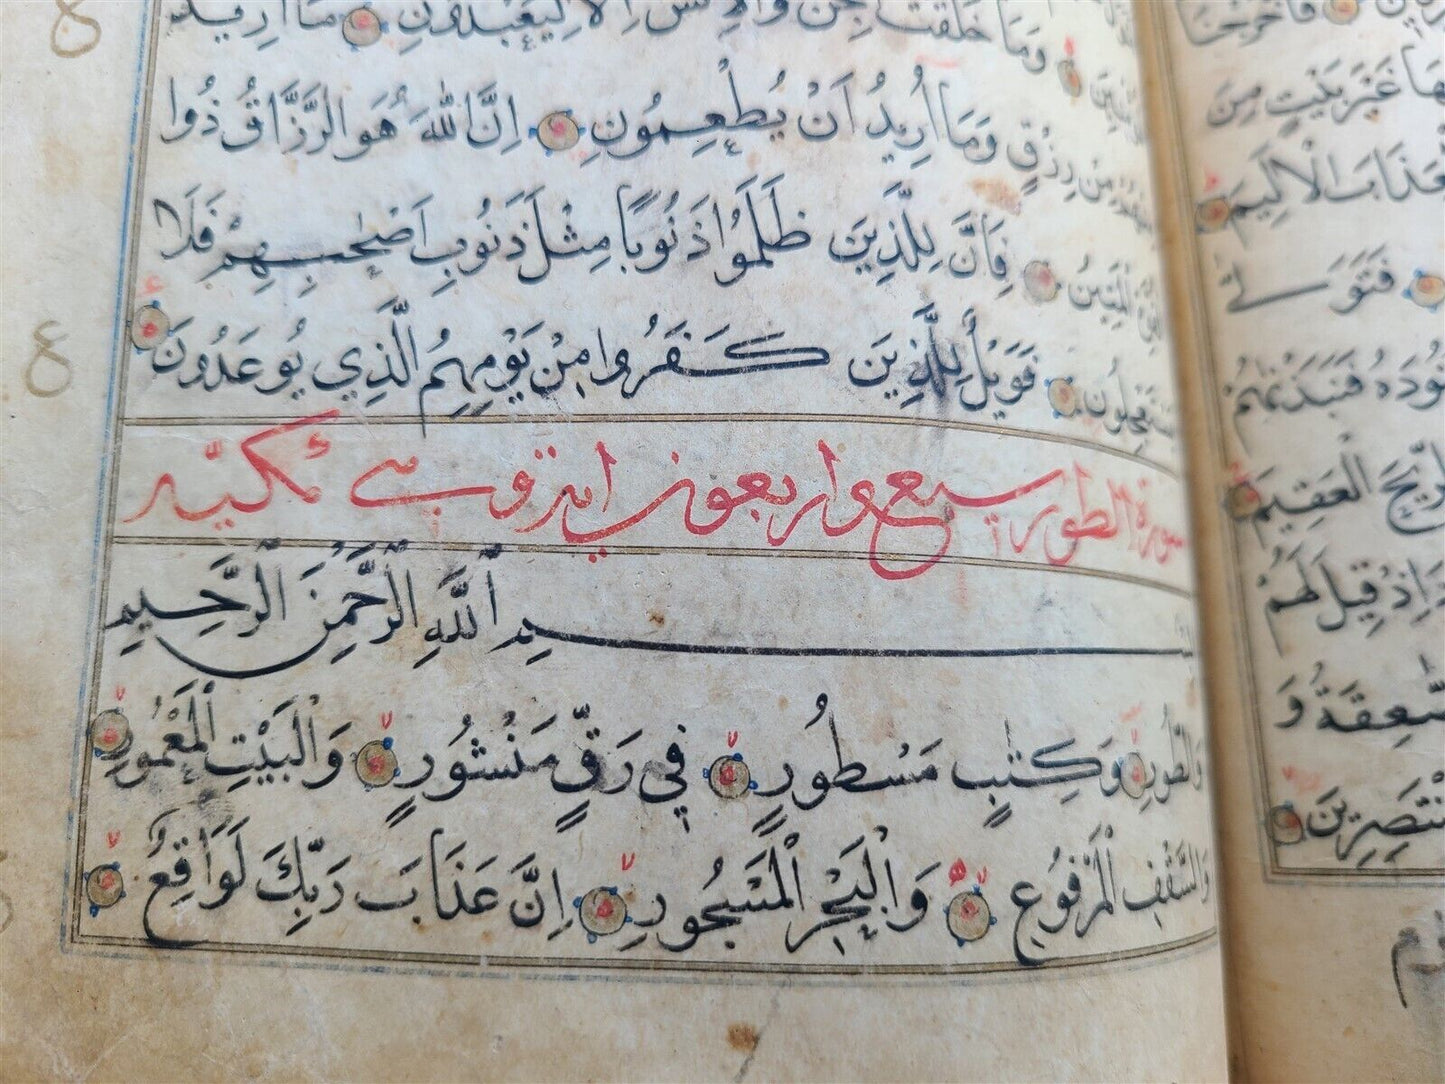 وَمَا خَلَقْتُ الْجِنَّ وَالْاِنْسَ اِلَّا لِيَعْبُدُونِ مَا اُرِيدُ
مِنْ رِزْقٍ وَمَا اُرِيدُ اَنْ يُطْعِمُونِ اِنَّ اللّٰهَ هُوَ الرَّزَّاقُ ذُوا
الْمَتِينُ فَاِنَّ لِلَّذِينَ ظَلَمُوا ذَنُوبًا مِثْلَ ذَنُوبِ اَصْحٰبِهِمْ فَلَا
يَسْتَعْجِلُونِ فَوَيْلٌ لِلَّذِينَ كَفَرُوا مِنْ يَوْمِهِمُ الَّذِي يُوعَدُونَ
سورة الطور سبع واربعون اية وهى مكية
بِسْمِ اللّٰهِ الرَّحْمٰنِ الرَّحِيمِ
وَالطُّورِ وَكِتٰبٍ مَسْطُورٍ فِي رَقٍّ مَنْشُورٍ وَالْبَيْتِ الْمَعْمُورِ
وَالسَّقْفِ الْمَرْفُوعِ وَالْبَحْرِ الْمَسْجُورِ اِنَّ عَذَابَ رَبِّكَ لَوَاقِعٌ
غَيْرَ بَيْتٍ مِنَ
الْعَذَابَ الْاَلِيمَ
فَتَوَلّٰى
فَنَبَذْنٰهُمْ
الرِّيحَ الْعَقِيمَ
اِذْ قِيلَ لَهُمْ
الصّٰعِقَةُ وَ
مُنْتَصِرِينَ